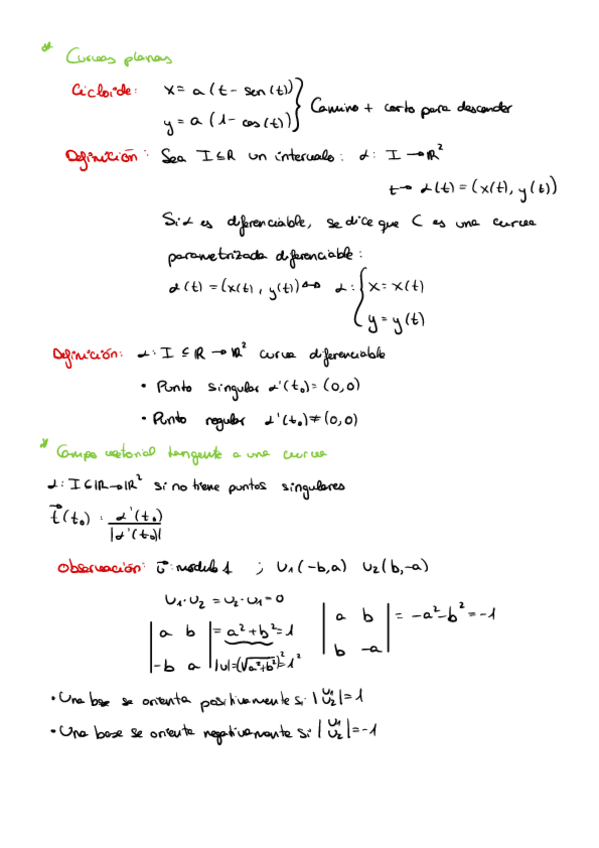 * Curvas planas
Cicloide: x = a (t - sen(t))
y = a (1 - cos(t)) } Camino + corto para descender
Definición: Sea I ⊆ R un intervalo: α: I → R²
t → α(t) = (x(t), y(t))
Si α es diferenciable, se dice que C es una curva
parametrizada diferenciable:
α(t) = (x(t), y(t)) ↔ α: { x = x(t)
y = y(t)
Definición: α: I ⊆ R → R² curva diferenciable
• Punto singular α'(t₀) = (0,0)
• Punto regular α'(t₀) ≠ (0,0)
* Campo vectorial tangente a una curva
α: I ⊆ R → R² si no tiene puntos singulares
t⃗(t₀) : α'(t₀) / |α'(t₀)|
Observación: v⃗: modulo 1 ; U₁(-b,a) U₂(b,-a)
U₁·U₂ = U₂·U₁ = 0
| a b | = a² + b² = 1
| -b a | |u| = (√a²+b²)² = 1²
| a b | = -a² - b² = -1
| b -a |
• Una base se orienta positivamente si |U₁ U₂| = 1
• Una base se orienta negativamente si |U₁ U₂| = -1